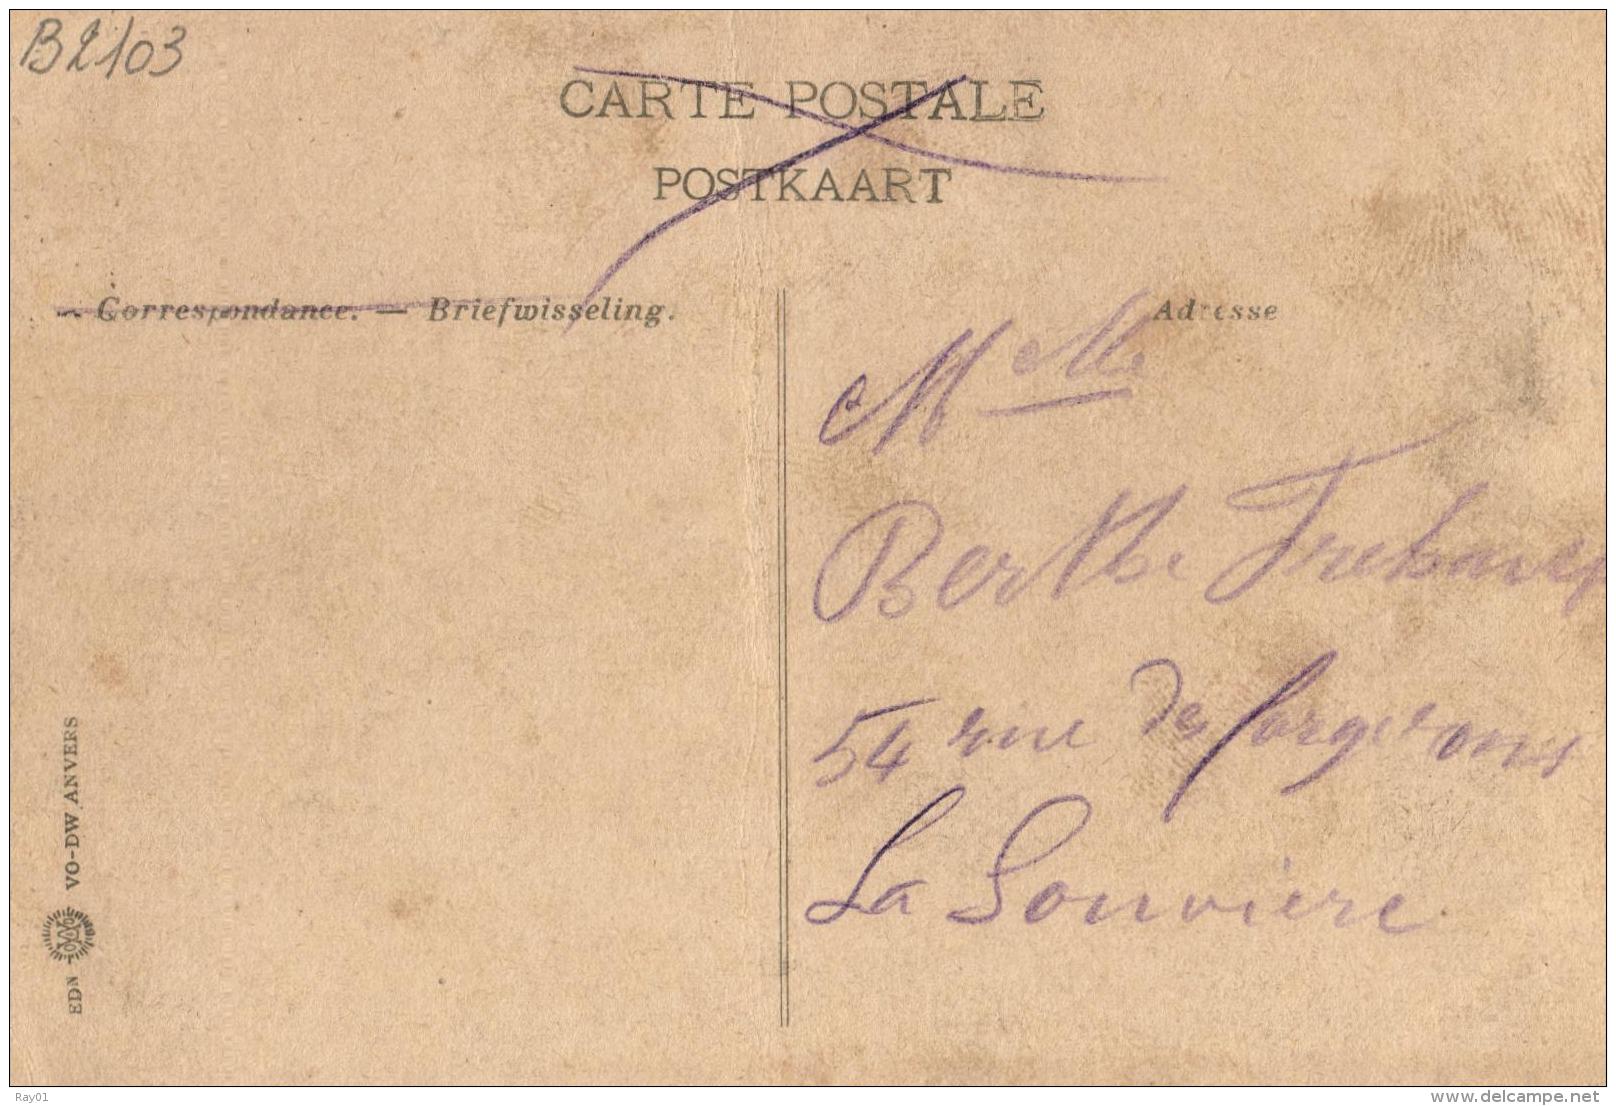 B2103
CARTE POSTALE
POSTKAART
Correspondance. — Briefwisseling.
Adresse
Melle
Berthe
54 rue des forgerons
La Louvière
EDN VO-DW ANVERS
Ray01
www.delcampe.net